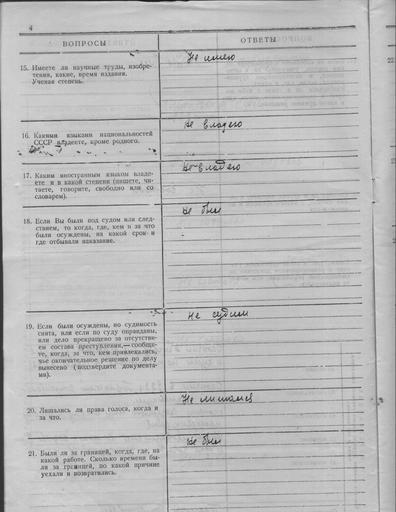 4
ВОПРОСЫ
ОТВЕТЫ
15. Имеете ли научные труды, изобре-
тения, какие, время издания.
Ученая степень.
Не имею
16. Какими языками национальностей
СССР владеете, кроме родного.
Не владею
17. Каким иностранным языком владе-
ете и в какой степени (пишете, чи-
таете, говорите, свободно или со
словарем).
Не владею
18. Если Вы были под судом или след-
ствием, то когда, где, кем и за что
были осуждены, на какой срок и
где отбывали наказание.
Не был
19. Если были осуждены, но судимость
снята, или если по суду оправданы,
или дело прекращено за отсутстви-
ем состава преступления,—сообщи-
те, когда, за что, кем привлекались,
чье окончательное решение по делу
вынесено (подтвердите документа-
ми).
Не судим
20. Лишались ли права голоса, когда и
за что.
Не лишался
21. Были ли за границей, когда, где, на
какой работе. Сколько времени бы-
ли за границей, по какой причине
уехали и возвратились.
Не был